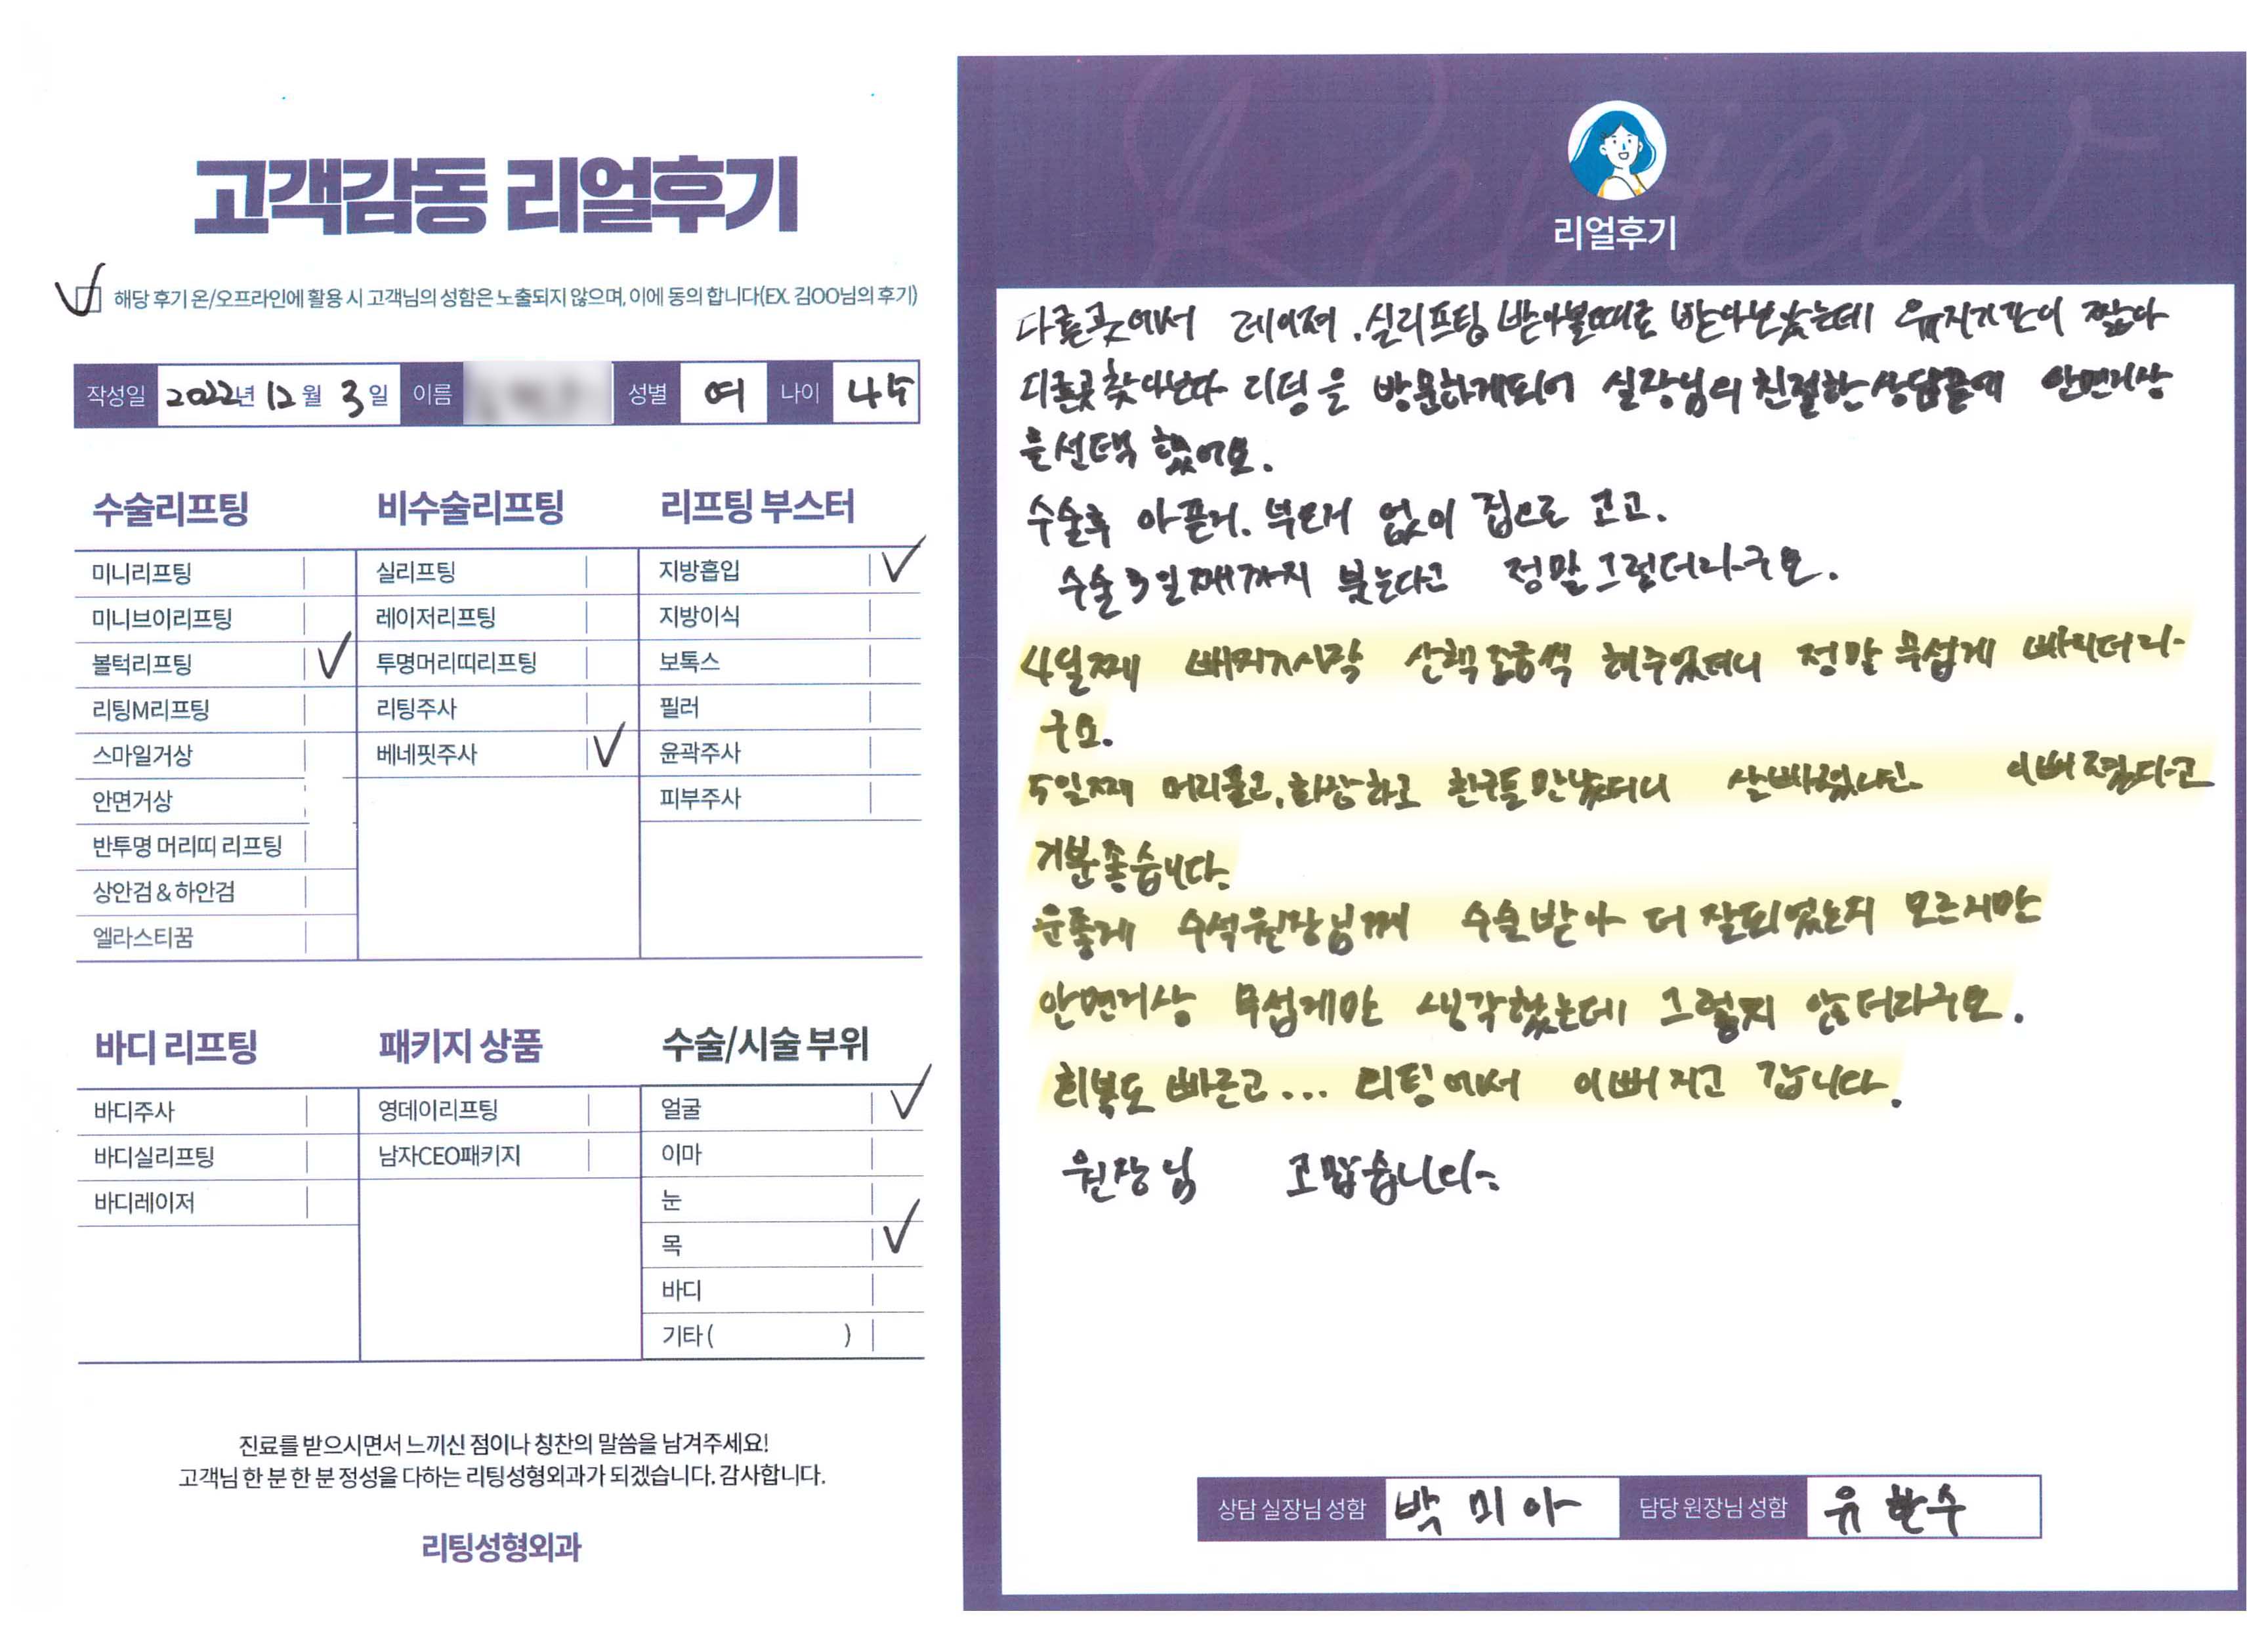 고객감동 리얼후기
해당 후기 온/오프라인에 활용 시 고객님의 성함은 노출되지 않으며, 이에 동의 합니다(EX. 김OO님의 후기)
작성일 2022년 12월 3일 이름 성별 여 나이 45
수술리프팅
미니리프팅
미니브이리프팅
볼턱리프팅
리팅M리프팅
스마일거상
안면거상
반투명 머리띠 리프팅
상안검 & 하안검
엘라스티꿈
비수술리프팅
실리프팅
레이저리프팅
투명머리띠리프팅
리팅주사
베네핏주사
리프팅 부스터
지방흡입
지방이식
보톡스
필러
윤곽주사
피부주사
바디 리프팅
바디주사
바디실리프팅
바디레이저
패키지 상품
영데이리프팅
남자CEO패키지
수술/시술 부위
얼굴
이마
눈
목
바디
기타 ( )
진료를 받으시면서 느끼신 점이나 칭찬의 말씀을 남겨주세요!
고객님 한 분 한 분 정성을 다하는 리팅성형외과가 되겠습니다. 감사합니다.
리팅성형외과
Review
리얼후기
다른곳에서 레이져. 실리프팅 받아볼때로 받아보았는데 유지기간이 짧아
리팅을 방문하게되어 실장님의 친절한 상담끝에 안면거상
을선택 했어요.
수술후 아픈거. 부은거 없이 집으로 고고.
수술3일째까지 붓는다고 정말그렇더라구요.
4일째 빠지기시작 산책조금씩 해주었더니 정말 무섭게 빠지더라
구요.
5일째 머리풀고, 화장하고 친구들만났더니 살빠졌냐면 이뻐졌다고
기분좋습니다.
운좋게 수석원장님께 수술받아 더 잘되었는지 모르지만
안면거상 무섭게만 생각했는데 그렇지 않더라구요.
회복도 빠르고... 리팅에서 이뻐지고 갑니다.
원장님 고맙습니다.
상담 실장님 성함 박미아 담당 원장님 성함 유한수